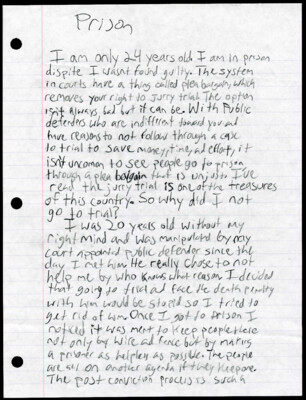 Prison
I am only 24 years old I am in prison
dispite I wasnt found guilty. The system
in courts have a thing called plea bargain which
removes your right to jurry trial. The option
isnt always bad but it can be. With Public
defenders who are indifferent toward you and
have reasons to not follow through a case
to trial to save money, time, and effort, it
isnt uncomon to see people go to prison
through a plea bargain that is unjust. I've
read the jurry trial is one of the treasures
of this country. So why did I not
go to trial?
I was 20 years old without my
right mind and was manipulated by my
court appointed public defender since the
day I met him. He really chose to not
help me by who knows what reason. I decided
that going to trial and face the death penalty
with him would be stupid so I tried to
get rid of him. Once I got to prison I
noticed it was ment to keep people here
not only by wire and fence but by making
a prisoner as helpless as possible. The people
are all on another agenda it they keep one.
The post conviction process is such a